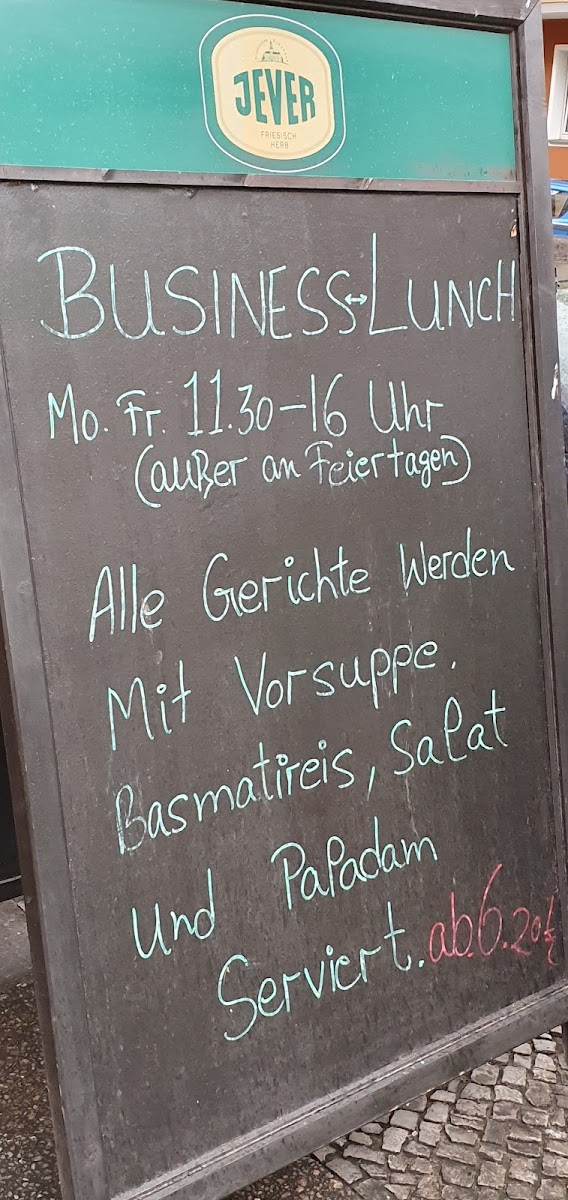 JEVER
FRIESISCH
HERB
BUSINESS↔LUNCH
Mo. Fr. 11.30-16 Uhr
(außer an Feiertagen)
Alle Gerichte Werden
Mit Vorsuppe.
Basmatireis, Salat
und Papadam
Serviert. ab. 6.20 €